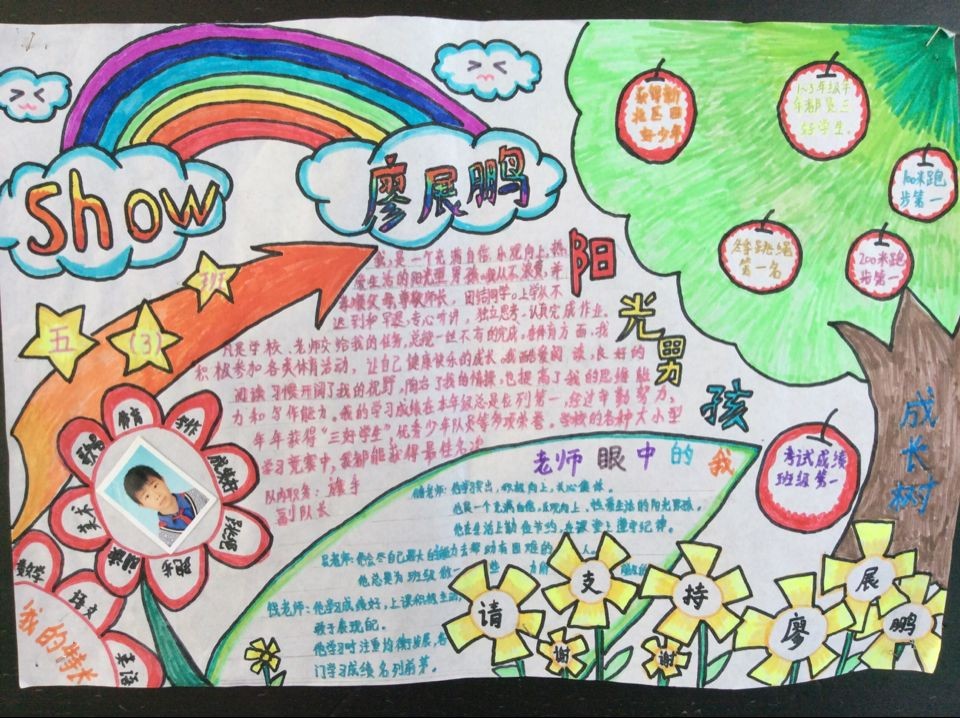 show
廖展鹏
五
(3)
班
阳光男孩
我,是一个充满自信、乐观向上、热
爱生活的阳光型男孩。我从不浪费,并
孝顺父母,尊敬师长,团结同学。上学从不
迟到和早退,专心听讲,独立思考,认真完成作业。
凡是学校、老师交给我的任务,总能一丝不苟的完成。在体育方面,我
积极参加各类体育活动,让自己健康快乐的成长。我酷爱阅读,良好的
阅读习惯开阔了我的视野,陶冶了我的情操,也提高了我的思维能
力和写作能力。我的学习成绩在本年级总是位列第一,经过辛勤努力,
年年获得“三好学生”优秀少年队员等多项荣誉。学校的各种大小型
学习竞赛中,我都能获得最佳名次
队内职务:旗手
副队长
1~5年级年
年都是三
好学生。
100米跑
步第一
第一名
200米跑
步第一
考试成绩
班级第一
成长树
老师眼中的我
老师:他学习突出,积极向上,关心集体。
也是一个充满自信,乐观向上、性格开朗的阳光男孩。
他在生活上勤俭节约,在课堂上遵守纪律。
老师:他会尽自己最大的能力去帮助有困难的人。
他总是为班级做一些力所
钱老师:他学习成绩好,上课积极主动
敢于展现自己。
他学习时注重均衡发展,各
门学习成绩名列前茅。
体育
跳绳
跑步
阅读
数学
语文
英语
我的特长
请支持廖展鹏
谢谢